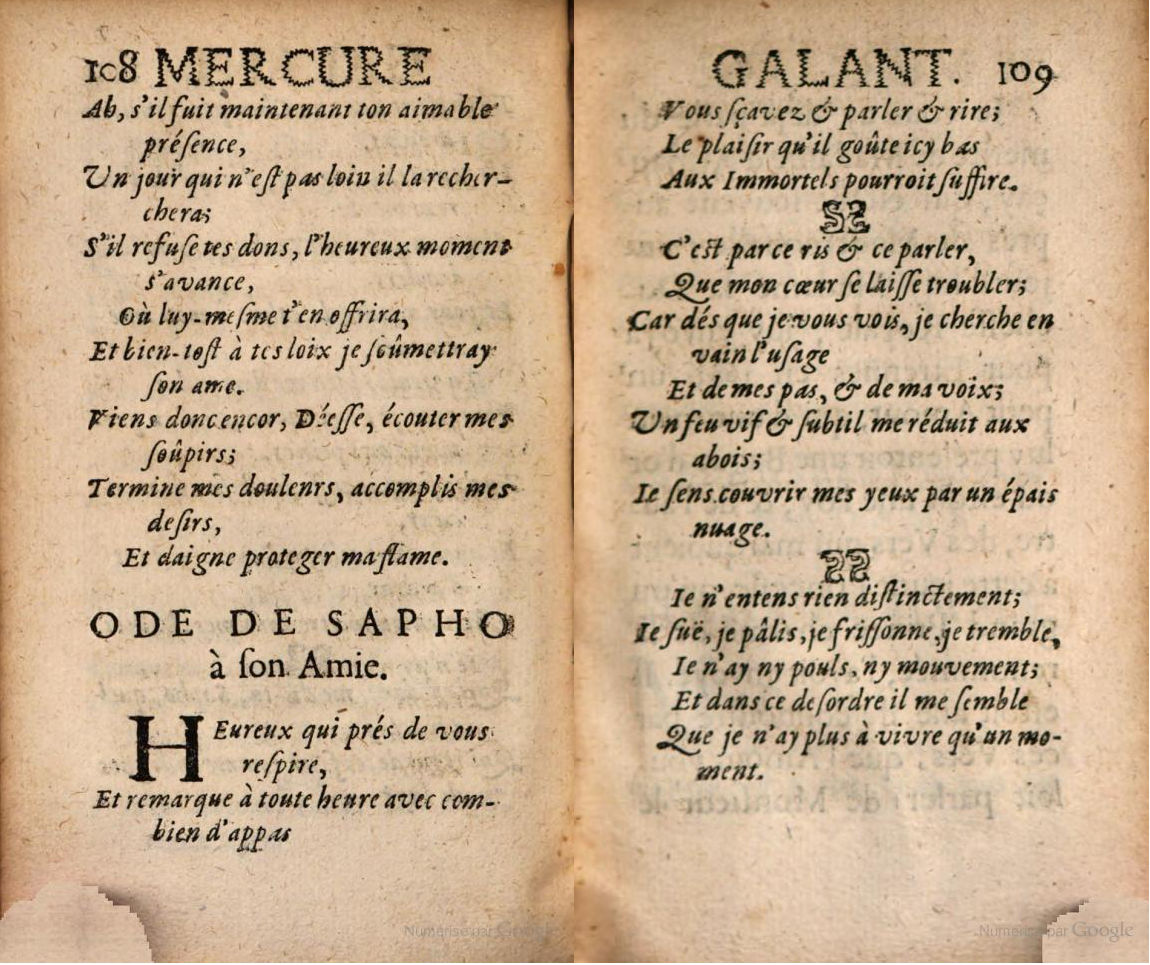 108 MERCURE
Ah, s'il fuit maintenant ton aimable
préſence,
Un jour qui n'eſt pas loin il la recher-
chera;
S'il refuſe tes dons, l'heureux moment
s'avance,
Où luy-meſme t'en offrira,
Et bien-toſt à tes loix je ſoûmettray
ſon ame.
Viens donc encor, Déeſſe, écouter mes
ſoûpirs;
Termine mes doulenrs, accomplis mes
deſirs,
Et daigne proteger ma flame.
ODE DE SAPHO
à ſon Amie.
HEureux qui prés de vous
reſpire,
Et remarque à toute heure avec com-
bien d'appas
Numérisé par Google
GALANT. 109
Vous ſçavez & parler & rire;
Le plaiſir qu'il goûte icy bas
Aux Immortels pourroit ſuffire.
C'eſt par ce ris & ce parler,
Que mon cœur ſe laiſſe troubler;
Car dés que je vous vois, je cherche en
vain l'uſage
Et de mes pas, & de ma voix;
Un feu vif & ſubtil me réduit aux
abois;
Ie ſens couvrir mes yeux par un épais
nuage.
Ie n'entens rien diſtinctement;
Ie ſuë, je pâlis, je friſſonne, je tremble,
Ie n'ay ny pouls, ny mouvement;
Et dans ce deſordre il me ſemble
Que je n'ay plus à vivre qu'un mo-
ment.
Numérisé par Google